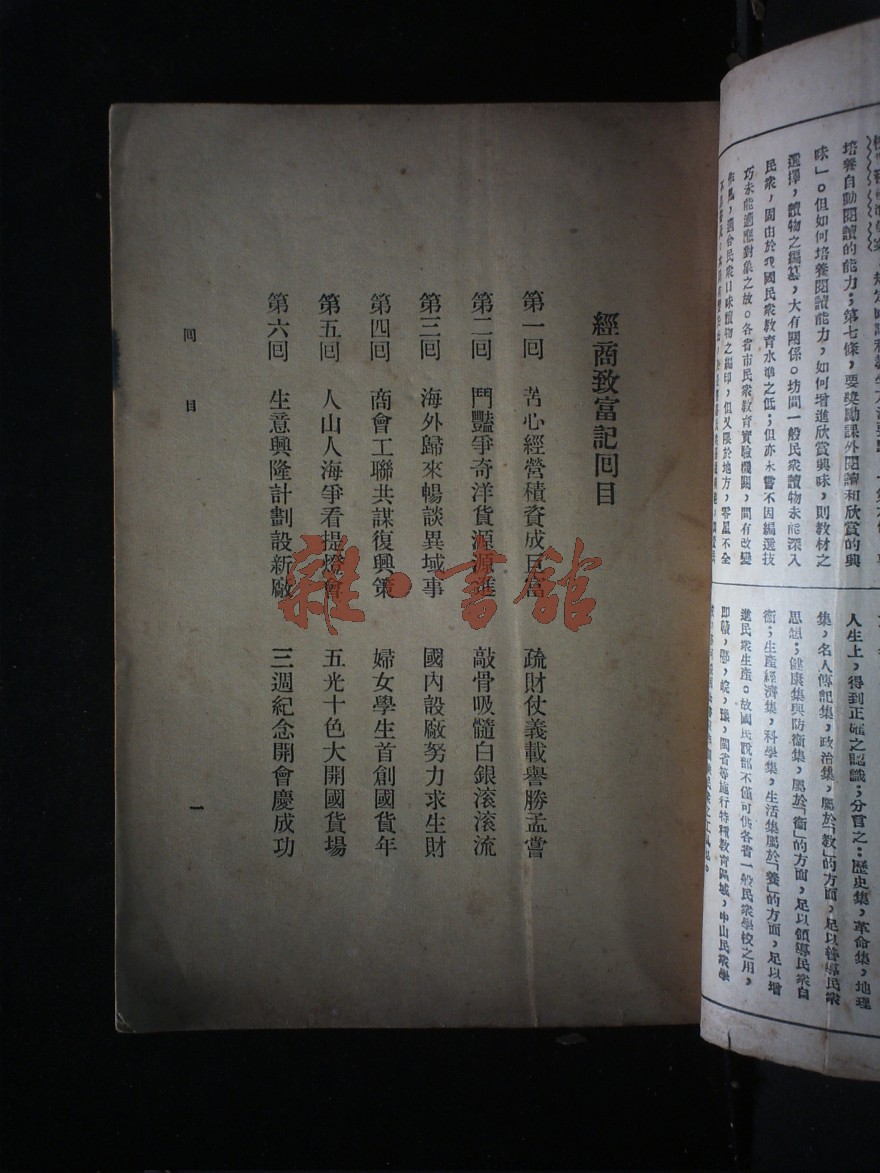 培養自動閱讀的能力;第七條,要獎勵課外閱讀和欣賞的興
味」。但如何培養閱讀能力,如何增進欣賞興味,則教材之
選擇,讀物之編纂,大有關係。坊間一般民衆讀物未能深入
民衆,固由於我國民衆教育水準之低;但亦未嘗不因編選技
巧未能適應對象之故。各省市民衆教育實驗機關,間有改變
適合民衆口味讀物之編印,但又限於地方,零星不全
人生上,得到正確之認識;分言之:歷史集,革命集,地理
集,名人傳記集,政治集,屬於「教」的方面,足以善導民衆
思想;健康集與防衛集,屬於「衛」的方面,足以領導民衆自
衛;生產經濟集,科學集,生活集屬於「養」的方面,足以增
進民衆生產。故國民說部不僅可供各省一般民衆學校之用,
即贛,鄂,皖,豫,閩省等施行特種教育區域,中山民衆學
經商致富記回目
第一回 苦心經營積資成巨富 疏財仗義載譽勝孟嘗
第二回 鬥豔爭奇洋貨源源進 敲骨吸髓白銀滾滾流
第三回 海外歸來暢談異域事 國內設廠努力求生財
第四回 商會工聯共謀復興策 婦女學生首創國貨年
第五回 人山人海爭看提燈會 五光十色大開國貨場
第六回 生意興隆計劃設新廠 三週紀念開會慶成功
回目
一
雜·書館